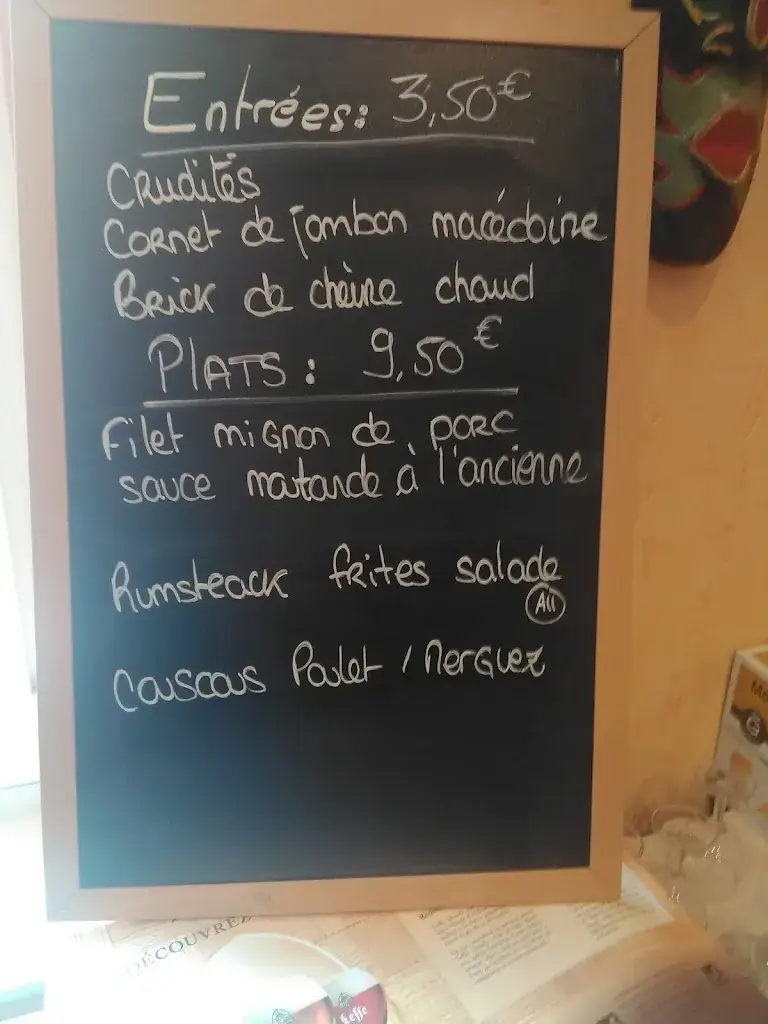 Entrées: 3,50€
Crudités
Cornet de jambon macédoine
Brick de chèvre chaud
Plats: 9,50€
Filet mignon de porc
sauce moutarde à l'ancienne
Rumsteack frites salade
All
Couscous Poulet / Merguez
DÉCOUVREZ
Leffe